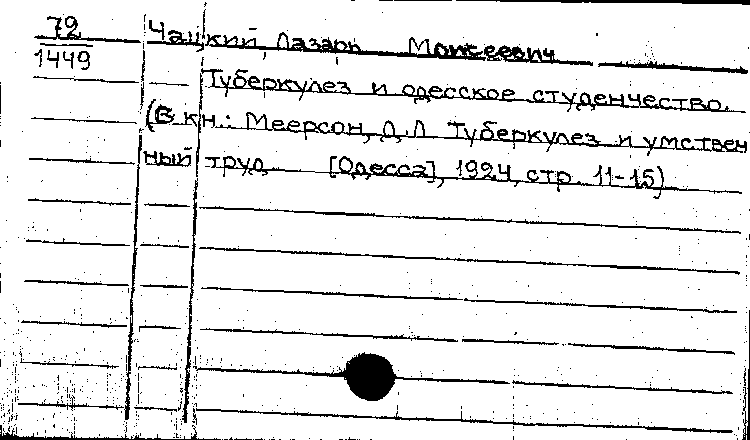 72
1449
Чацкий, Лазарь Моисеевич
Туберкулез и одесское студенчество.
(В кн.: Меерсон, Д.Л. Туберкулез и умствен
ный труд [Одесса], 1924, стр. 11-15)